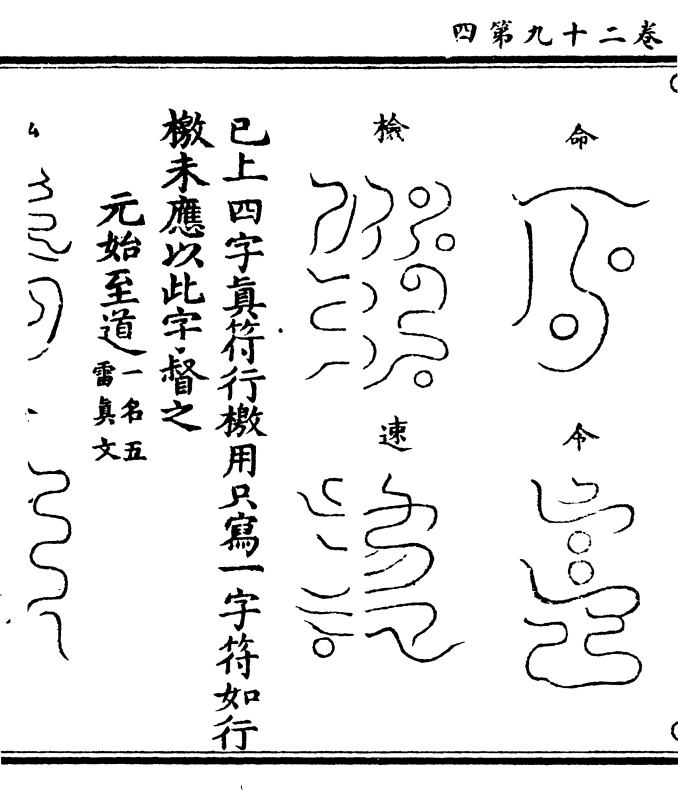 卷二十九第四
命
令
檢
速
已上四字眞符行檄用只寫一字符如行
檄未應以此字督之
元始至道一名五
雷眞文